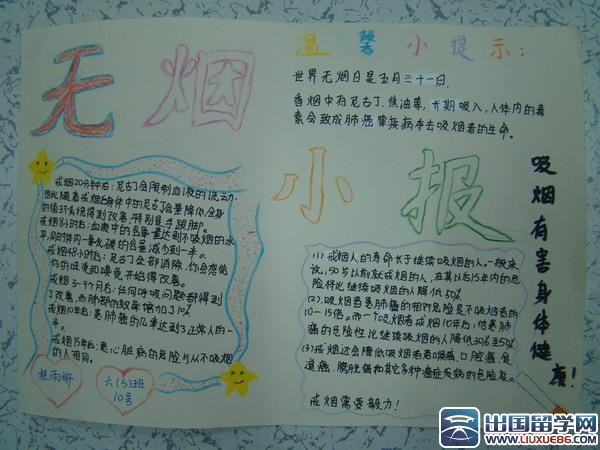 无烟
小报
温馨小提示：
世界无烟日是五月三十一日.
香烟中有尼古丁、焦油等，长期吸入，人体内的毒
素会致成肺癌等疾病夺去吸烟者的生命.
戒烟20分钟后：尼古丁会限制血液的流动.
因此随着戒烟后身体中的尼古丁含量降低，全身
的循环系统得到改善，特别是手跟脚.
戒烟8小时后：血液中的含氧量达到不吸烟的水
平，同时体内一氧化碳的含量减少到一半.
戒烟48小时后：尼古丁全部消除，你会发现
你的味觉和嗅觉开始得改善。
戒烟3-9个月后：任何呼吸问题都得到
了改善，而肺部的效率增加了10%
戒烟10年后：患肺癌的几率达到了正常人的一
半。
戒烟15年后：患心脏病的危险与从不吸烟
的人相同。
六(5)班
10号
(1)戒烟人的寿命长于继续吸烟的人。一般来
说，50岁以前就戒烟的人，在其以后15年内的危
险将比继续吸烟的人降低50%
(2).吸烟者患肺癌的相对危险是不吸烟者的
10-15倍。而一个吸烟者戒烟10年后，他患肺
癌的危险性比继续吸烟的人降低30%至50%
(3)戒烟还会降低吸烟者患喉癌、口腔癌、食
道癌、膀胱癌和其它多种癌症疾病的危险度。
戒烟需要毅力！
吸烟有害身体健康！
出国留学网
www.liuxue86.com